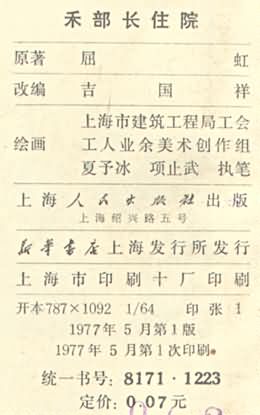 禾部长住院
原著 屈虹
改编 吉国祥
上海市建筑工程局工会
绘画 工人业余美术创作组
夏予冰 项止武 执笔
上海人民出版社出版
上海绍兴路五号
新华书店上海发行所发行
上海市印刷十厂印刷
开本787×1092 1/64 印张 1
1977年5月第1版
1977年5月第1次印刷
统一书号：8171·1223
定价：0.07元